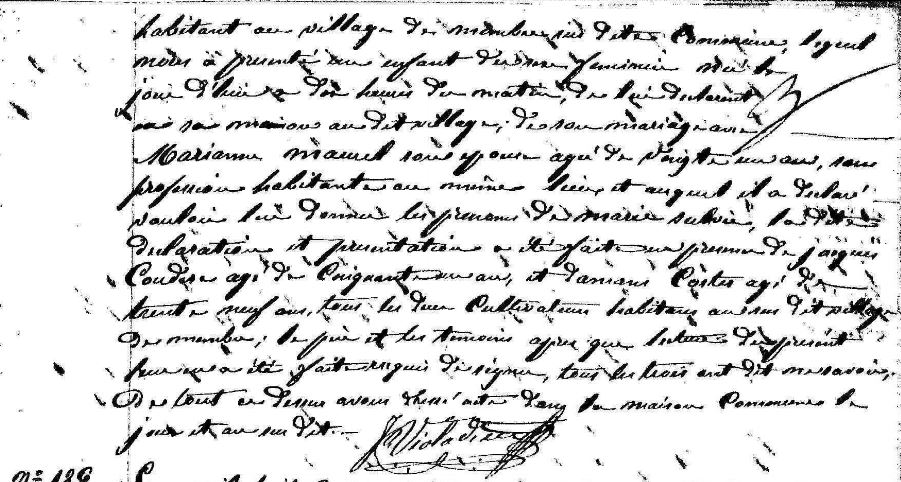 habitant au village de membre sus dite Commune, lequel
nous a presenté un enfant du sexe feminin né le
jour d'hui a dix heures du matin, de lui declarent
en sa maison au dit village, de son mariage avec
Marianne maurel son epouse agé de vingte un an, sans
profession habitante au même lieu, et auquel il a declaré
vouloir lui donner les prenoms de marie silvie, la dite
declaration et presentation a été faite en presence de jacques
Couderc agé de Cinquante un an, et damans Costes agé de
trente neuf ans, tous les deux Cultivateurs habitans au sus dit village
de membre; le père et les temoins apres que lecture du présent
leur en a été faite requis de signer, tous les trois ont dit ne savoir,
De tout ce dessus avons dressé acte dans la maison Commune le
jour et an sus dit.
Violadieu
N° 126